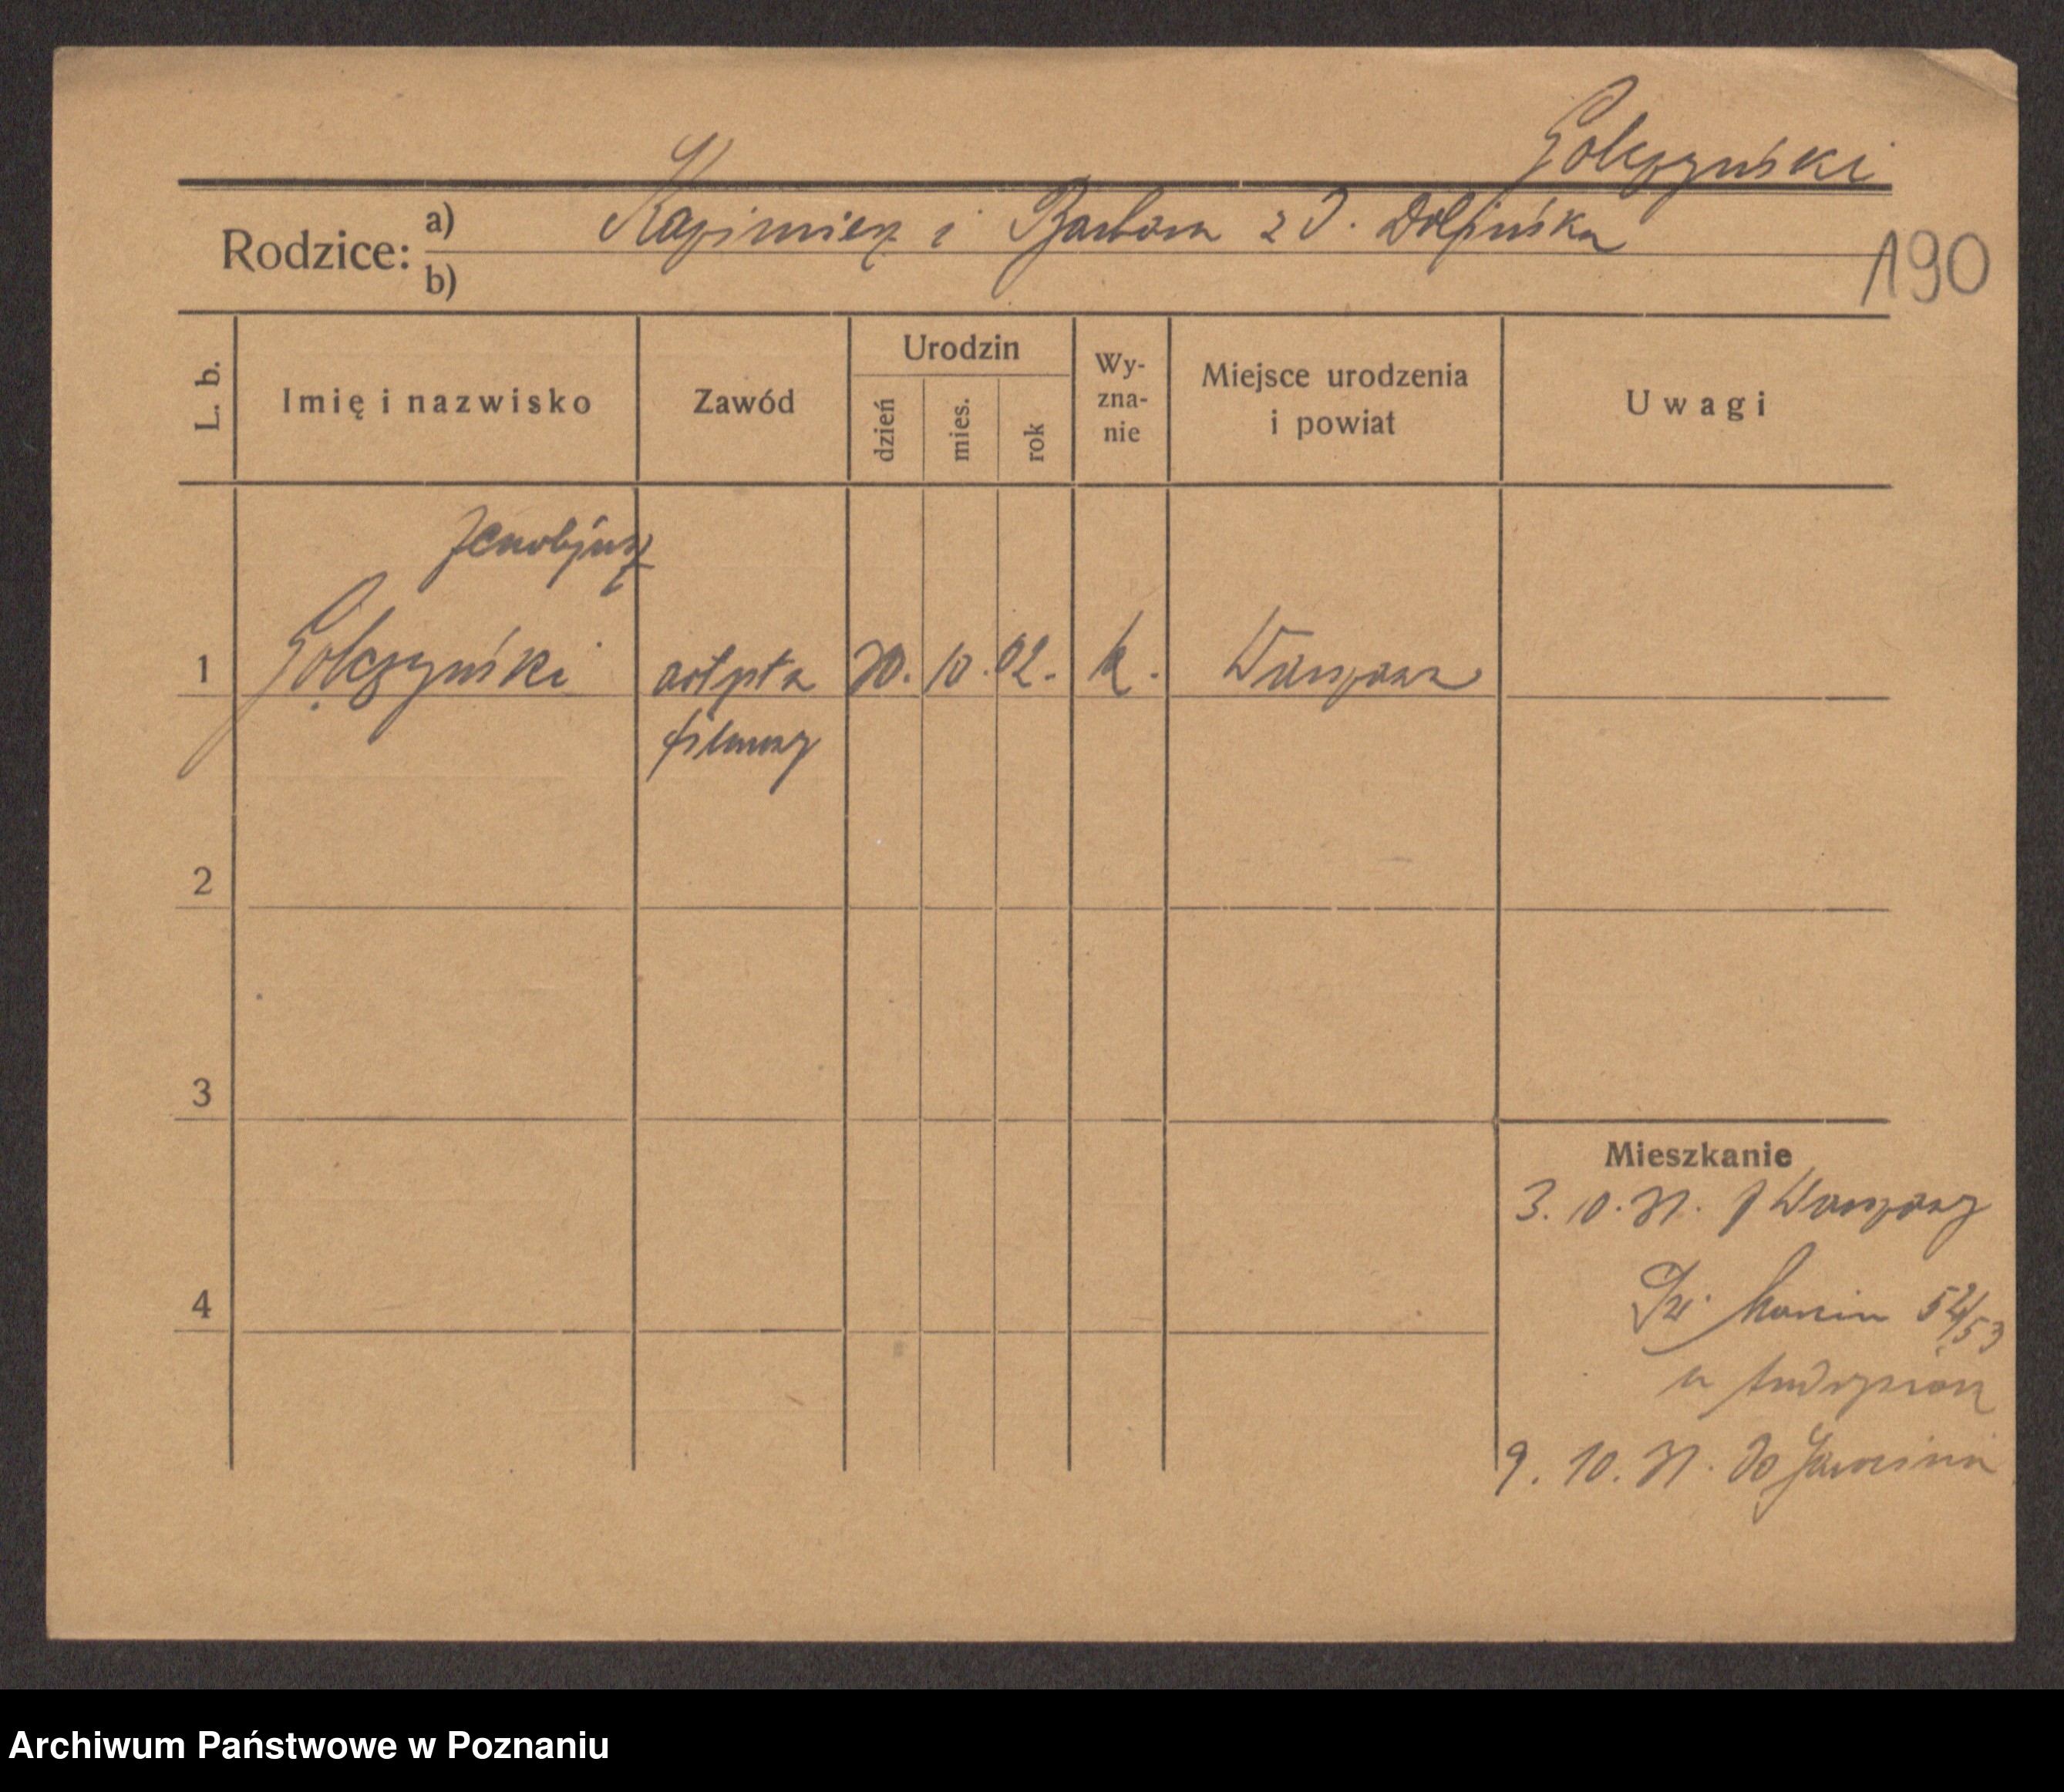 Golczyński
Rodzice: a) Kazimierz i Barbara z d. Dolfińska
b)
190
L. b. Imię i nazwisko Zawód Urodzin dzień mies. rok Wy-zna-nie Miejsce urodzenia i powiat Uwagi
Zenobjusz
1 Golczyński artysta 30. 10. 02. k. Warszawa
filmowy
2
3
Mieszkanie
3. 10. 31. z Warszawy
4
Marcin 52/53
u
9. 10. 31. do Jarocina
Archiwum Państwowe w Poznaniu